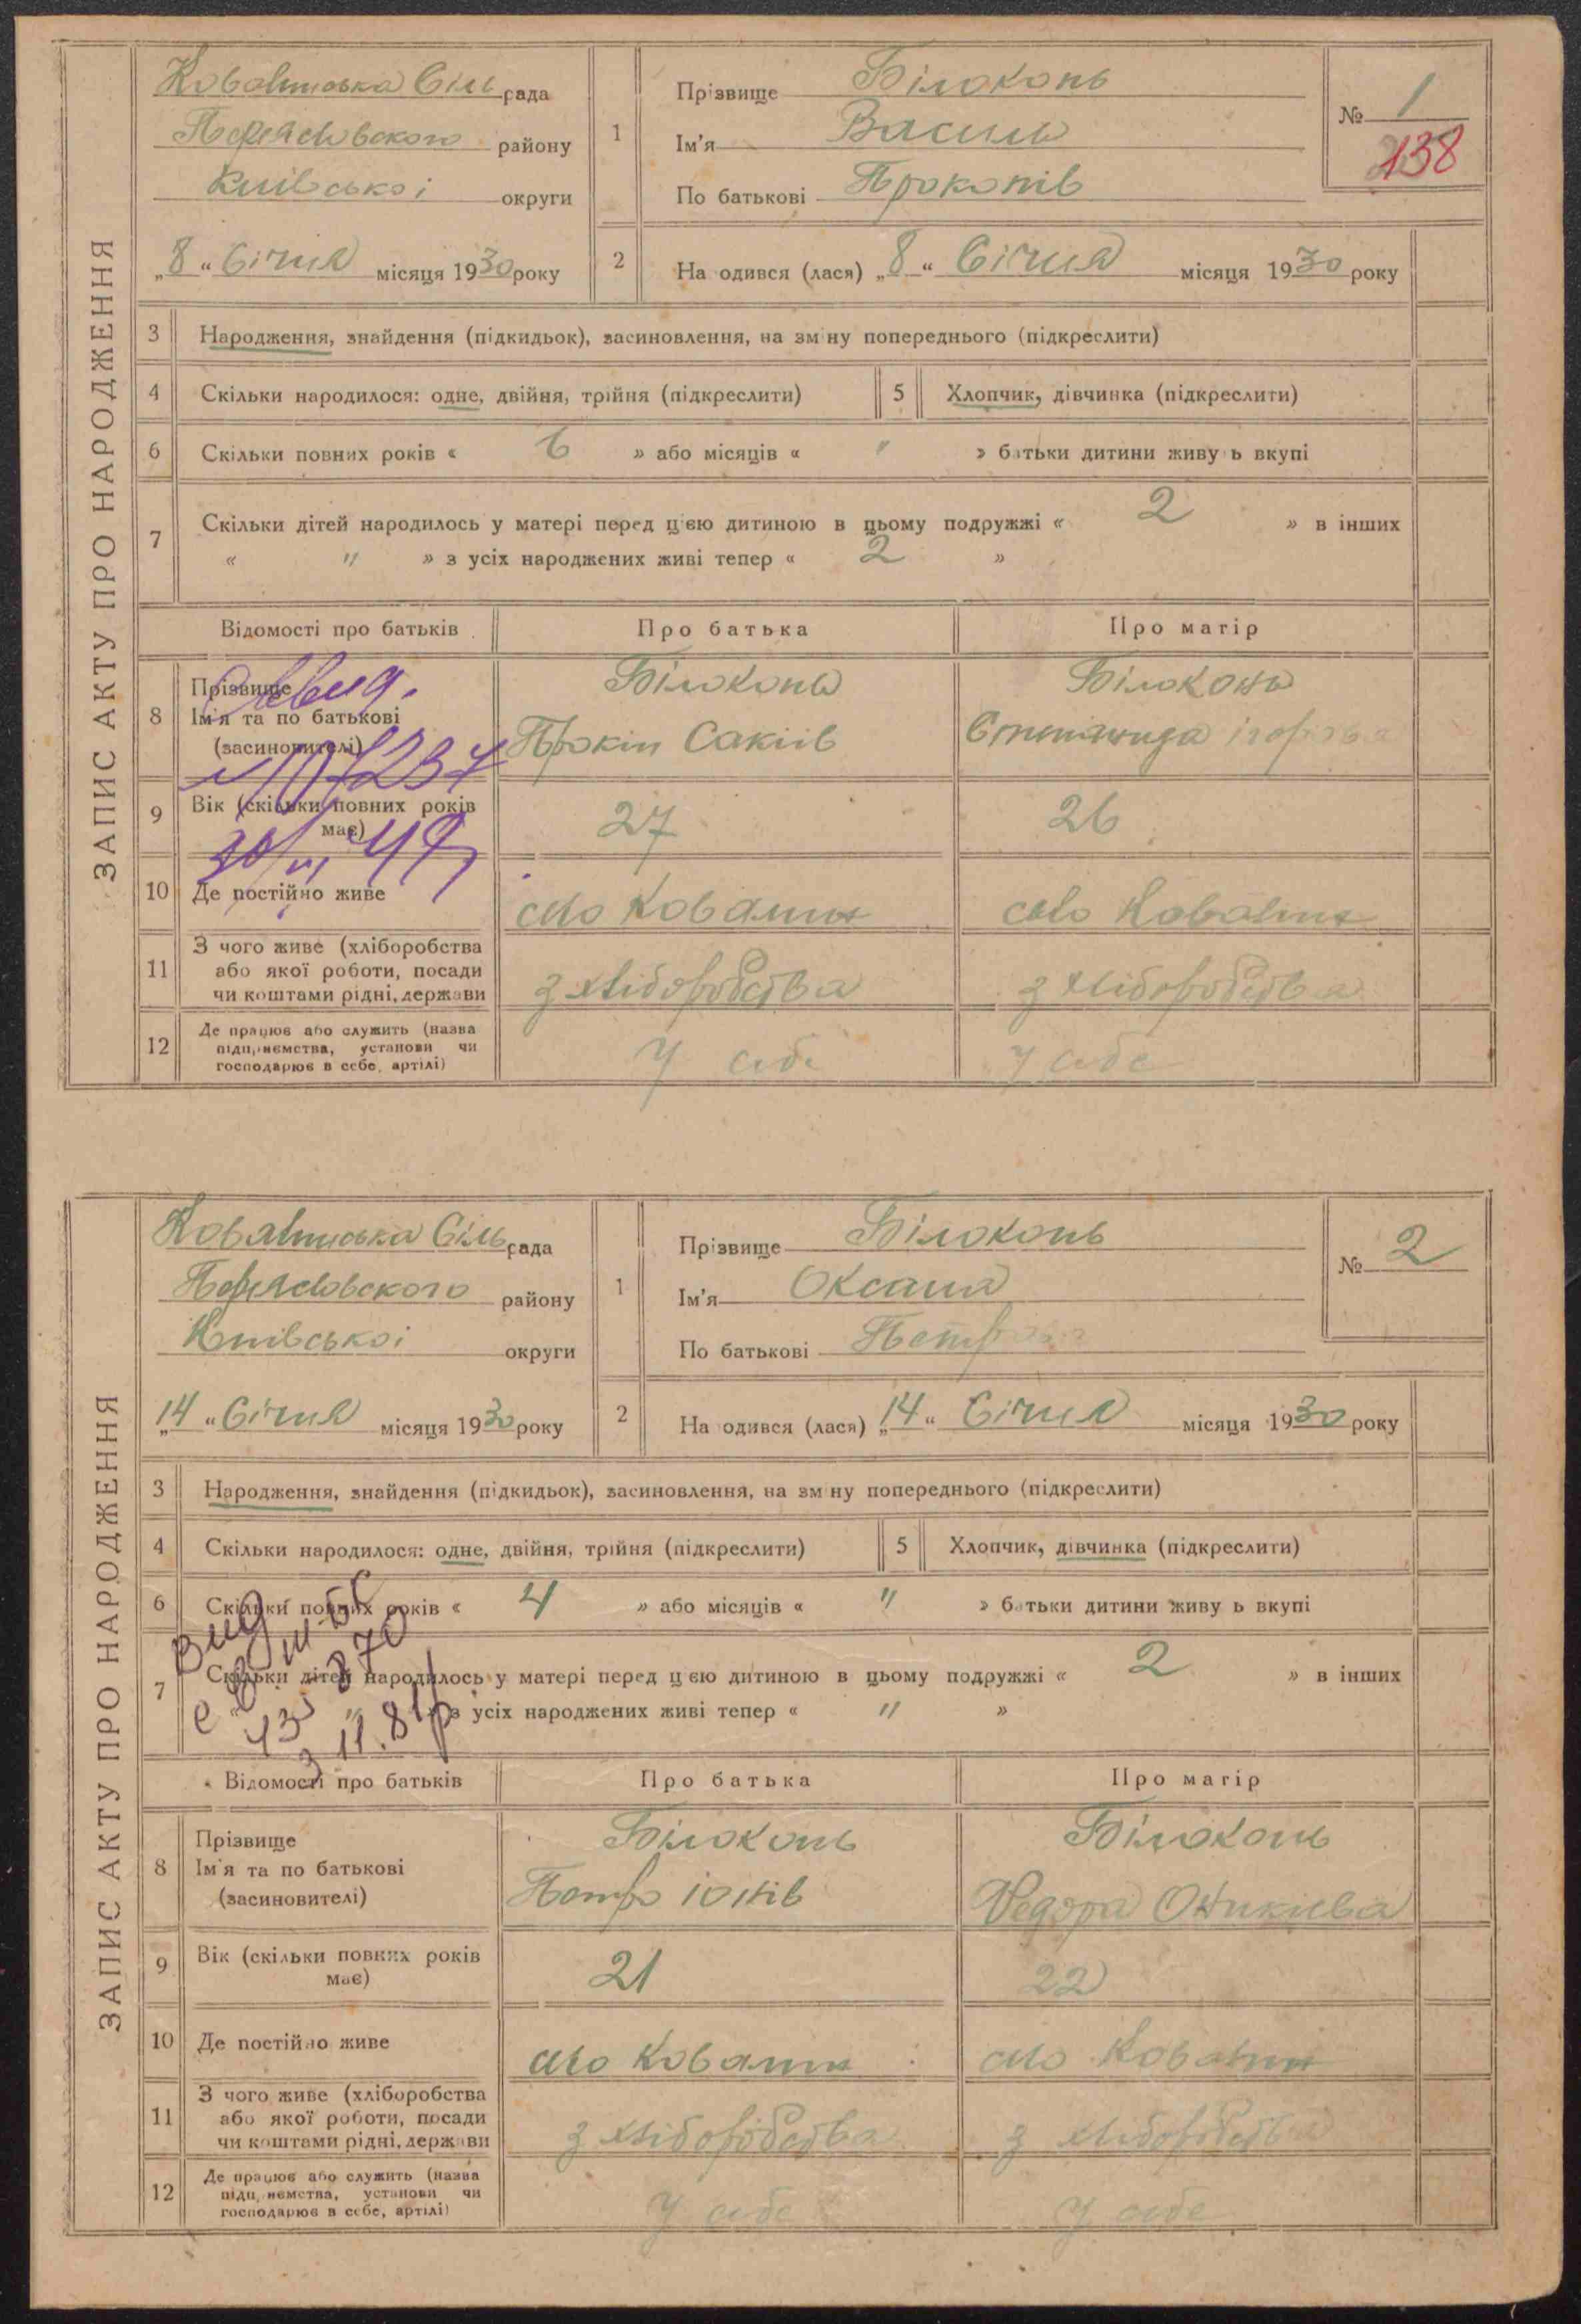 ЗАПИС АКТУ ПРО НАРОДЖЕННЯ
Ковалинська Сіль рада
Переясловського району
Київської округи
„8“ Січня місяця 1930 року
1
Прізвище Білоконь
Ім'я Василь
По батькові Прокопів
№ 1
138
2
На одився (лася) „8“ Січня місяця 1930 року
3 Народження, знайдення (підкидьок), засиновлення, на зм ну попереднього (підкреслити)
4 Скільки народилося: одне, двійня, трійня (підкреслити) 5 Хлопчик, дівчинка (підкреслити)
6 Скільки повних років « 6 » або місяців « " » батьки дитини живу ь вкупі
7 Скільки дітей народилось у матері перед цією дитиною в цьому подружжі « 2 » в інших
« " » з усіх народжених живі тепер « 2 »
Відомості про батьків Про батька Про матір
8 Прізвище Білоконь Білоконь
Ім'я та по батькові Прокіп Сакіїв
(засиновителі)
9 Вік (скільки повних років має) 27 26
10 Де постійно живе село Ковалин село Ковалин
11 З чого живе (хліборобства або якої роботи, посади чи коштами рідні, держави з хліборобства з хліборобства
12 Де працює або служить (назва підприємства, установи чи господарює в себе, артілі) У себе У себе
ЗАПИС АКТУ ПРО НАРОДЖЕННЯ
Ковалинська Сіль рада
Переясловського району
Київської округи
„14“ Січня місяця 1930 року
1
Прізвище Білоконь
Ім'я Оксана
По батькові Петрова
№ 2
2
На одився (лася) „14“ Січня місяця 1930 року
3 Народження, знайдення (підкидьок), засиновлення, на зм ну попереднього (підкреслити)
4 Скільки народилося: одне, двійня, трійня (підкреслити) 5 Хлопчик, дівчинка (підкреслити)
6 Скільки повних років « 4 » або місяців « " » батьки дитини живу ь вкупі
7 Скільки дітей народилось у матері перед цією дитиною в цьому подружжі « 2 » в інших
" » з усіх народжених живі тепер « " »
Відомості про батьків Про батька Про матір
8 Прізвище Білоконь Білоконь
Ім'я та по батькові Петро
(засиновителі)
9 Вік (скільки повних років має) 21 22
10 Де постійно живе село Ковалин село Ковалин
11 З чого живе (хліборобства або якої роботи, посади чи коштами рідні, держави з хліборобства з хліборобства
12 Де працює або служить (назва підприємства, установи чи господарює в себе, артілі) У себе У себе